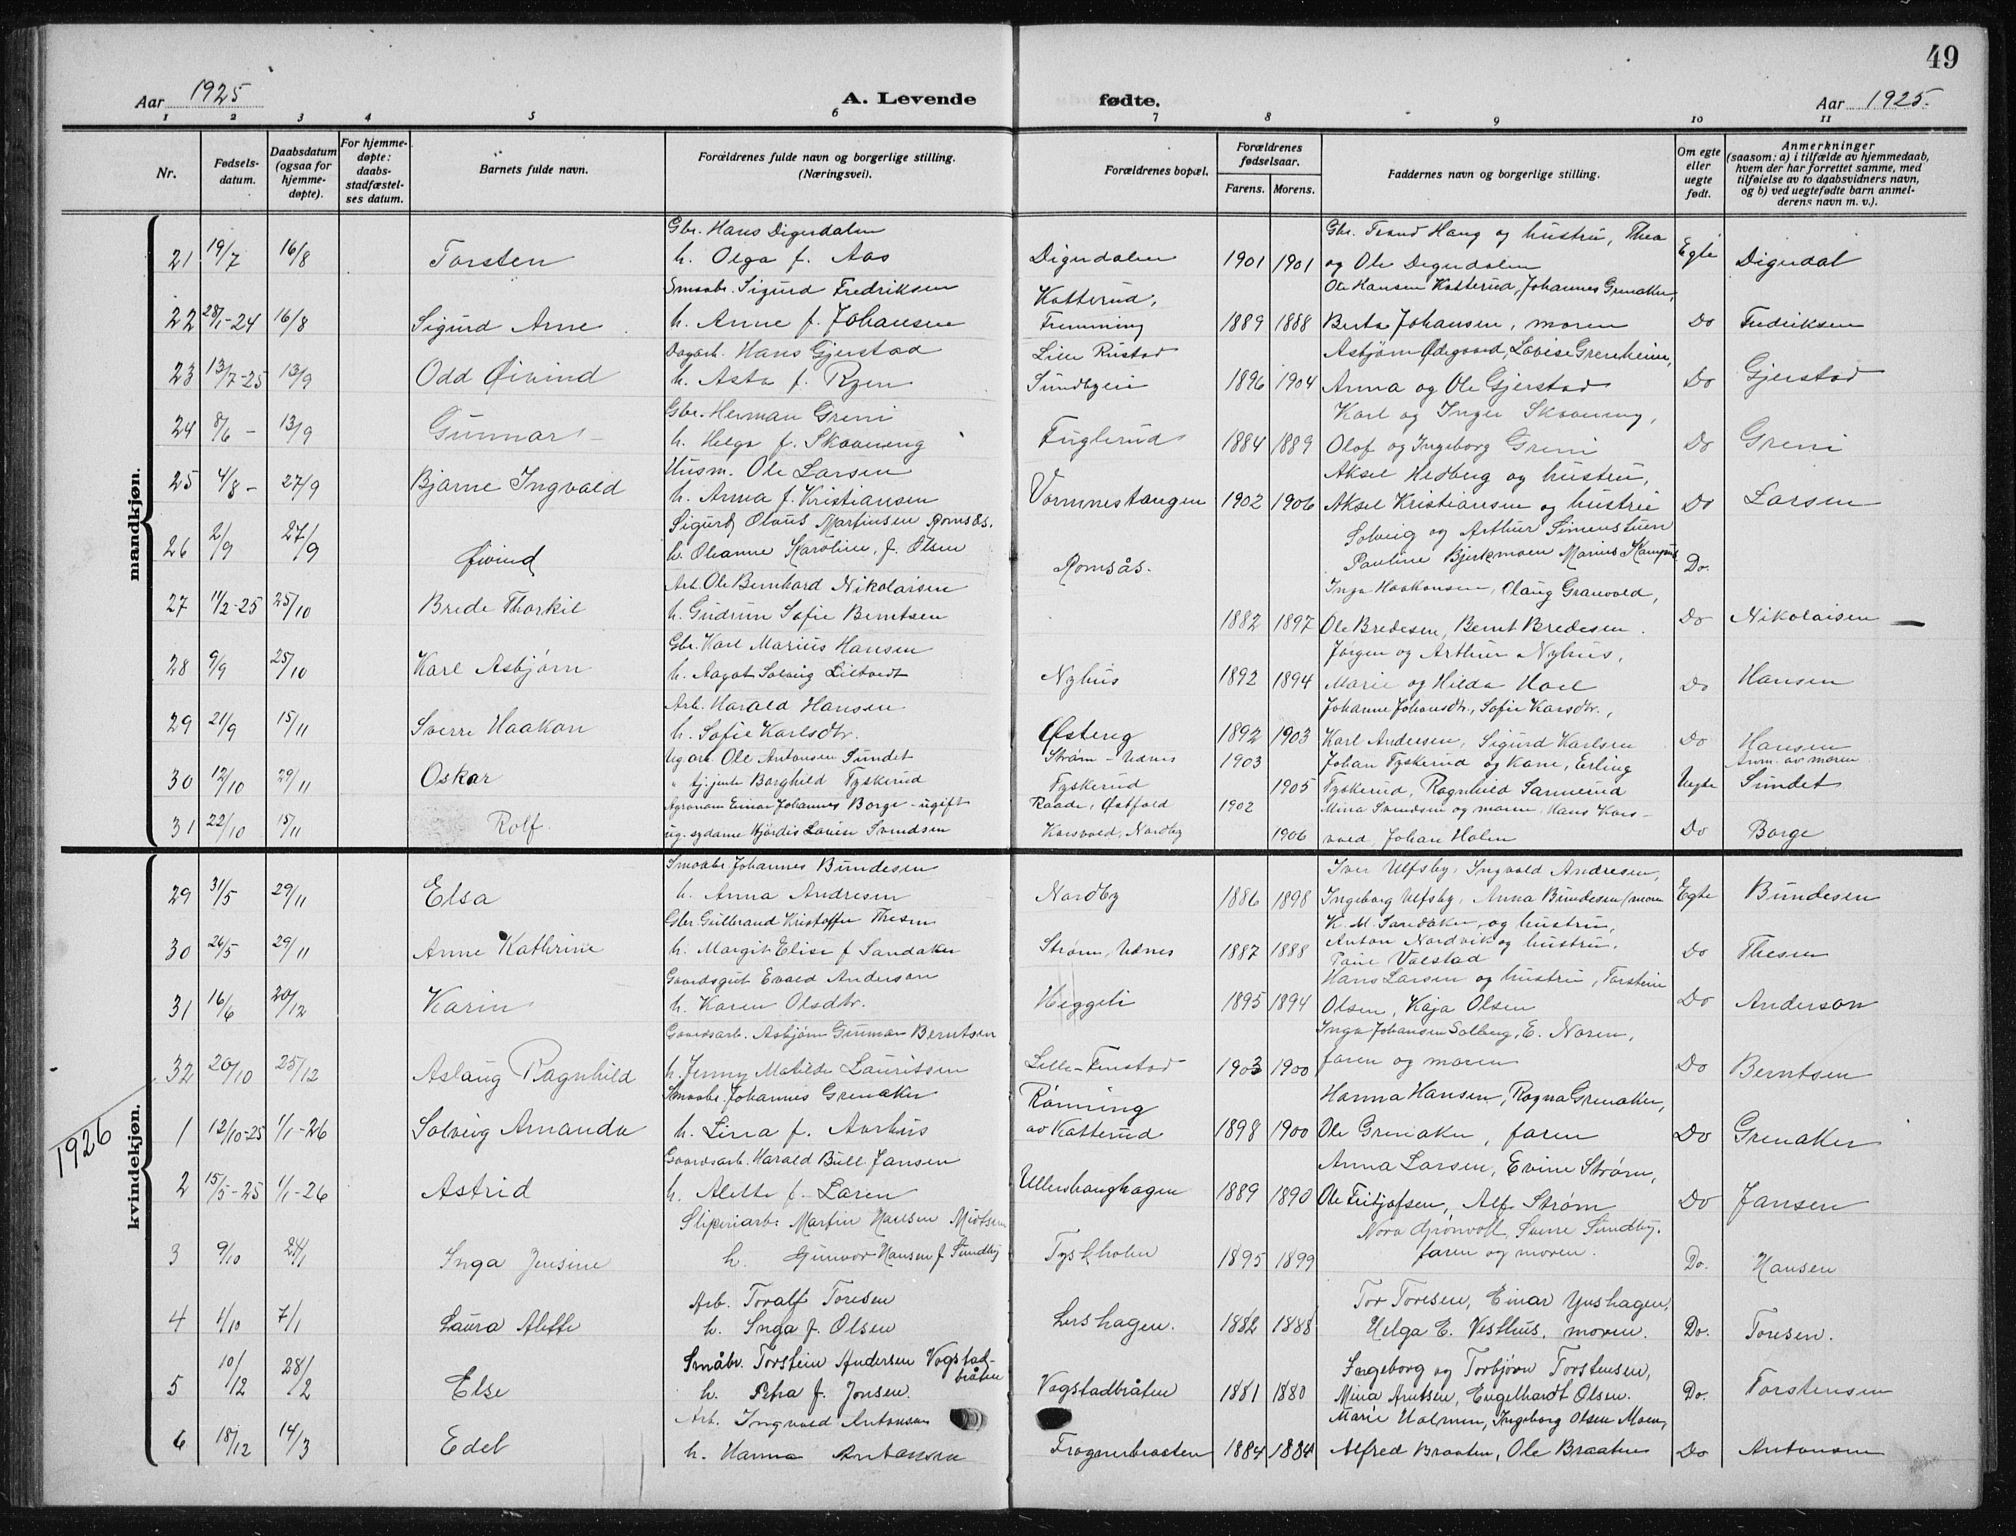 49
Aar 1925
A. Levende fødte.
Aar 1925.
1 2 3 4 5 6 7 8 9 10 11
Nr.
Fødsels-
datum.
Daabsdatum
(ogsaa for
hjemme-
døpte).
For hjemme-
døpte:
daabs-
stadfæstel-
ses datum.
Barnets fulde navn.
Forældrenes fulde navn og borgerlige stilling.
(Næringsvei).
Forældrenes bopæl.
Forældrenes
fødselsaar.
Farens. Morens.
Faddernes navn og borgerlige stilling.
Om egte
eller
uegte
født.
Anmerkninger
(saasom: a) i tilfælde av hjemmedaab,
hvem der har forrettet samme, med
tilføielse av to daabsvidners navn,
og b) ved uegtefødte barn anmel-
derens navn m. v.).
mandkjøn.
Gbr. Hans Digerdalen Gbr. Trond Haug og hustru, Thea
21 19/7 16/8 Torsten h. Olga f. Aas Digerdalen 1901 1901 og Ole Digerdalen Egte Digerdal
Smaabr. Sigurd Fredriksen Katterud, Ole Hansen Katterud, Johannes Grenaker,
22 28/1-24 16/8 Sigurd Arne h. Anne f. Johansen 1889 1888 Berta Johansen, moren Do Fredriksen
Dagarb. Hans Gjerstad Lille Rustad Asbjørn Ødegaard, Lovise
23 13/7-25 13/9 Odd Øivind h. Asta f. Ryen Sundbyeie 1896 1904 Anna og Ole Gjerstad Do Gjerstad
Gbr. Herman Greni Karl og Inger Skaaning,
24 8/6 - 13/9 Gunnar h. Helga f. Fuglerud 1884 1889 Olaf og Ingeborg Greni Do Greni
Husm. Ole Larsen Aksel Hedberg og hustru,
25 4/8 - 27/9 Bjarne Ingvald h. Anna f. Kristiansen Vormnestangen 1902 1906 Aksel Kristiansen og hustru Do Larsen
Sigurd Olaus Martinsen Romsås. Solveig og Arthur Simenstuen
26 2/9 27/9 Øivind h. Oleanne Karoline, f. Olsen Romsås. Pauline Bjerkmoen Marius Do.
Arb. Ole Bernhard Nikolaisen Inga Haakonsen, Olaug Granvold,
27 11/2-25 25/10 Brede Thorkil h. Gudrun Sofie Berntsen 1882 1897 Ole Bredesen, Bernt Bredesen. Do Nikolaisen
Gbr. Karl Marius Hansen Jørgen og Arthur Nyhus,
28 9/9 25/10 Karl Asbjørn h. Aagot Solveig Lietvedt Nyhus 1892 1894 Marie og Hilda Hoel Do Hansen
Arb. Harald Hansen Johanne Johansdtr., Sofie Karsdtr.,
29 21/9 15/11 Sverre Haakon h. Sofie Karlsdtr. Østereg 1892 1903 Karl Andersen, Sigurd Karlsen Do Hansen
Ug. arb. Ole Antonsen Sundet Strøm - Udnes 1903 Johan Tyskerud og Kone, Erling Anm. av moren
30 12/10 29/11 Oskar " tj.jente Borghild Tyskerud Tyskerud 1905 Tyskerud, Ragnhild Sannerud Uegte Sundet
Agronom Einar Johannes Borge - ugift Raade, Østfold 1902 Mina Svendsen og moren Hans Kors-
31 22/10 15/11 Rolf. ug. sydame Hjördis Svendsen Korsvold, Nordby 1906 vold, Johan Holm Do Borge
kvindekjøn.
Smaabr. Johannes Bundesen Iver Ulfsby, Ingvald Andresen,
29 31/5 29/11 Elsa h. Anna Andresen Nordby 1886 1898 Ingeborg Ulfsby, Anna Bundesen, moren Egte Bundesen
Gbr. Gulbrand Kristoffer Thesen K. M. Sandaker og hustru,
30 26/5 29/11 Anne Kathrine h. Margit Elise f Sandaker Strøm, Udnes 1887 1888 Anton Nordvik og hustru, Valstad Do Thesen
Gaardsgut Evald Anderson Hans Larsen og hustru, Torstein
31 16/6 20/12 Karin h. Karen Olsdtr. Heggeli 1895 1894 Olsen, Kaja Olsen Do Anderson
Gaardsarb. Asbjørn Gunnar Berntsen Inga Johansen Solberg, E. Noren,
32 20/10 25/12 Aslaug Ragnhild h. Jenny Matilde Lauritsen Lille-Finstad 1903 1900 faren og moren Do Berntsen
1926
Smaabr. Johannes Grenaker Rønning Hanna Hansen, Ragna Grenaker,
1 12/10-25 1/1-26 Solveig Amanda h. Lina f. Aarhus av Katterud 1898 1900 Ole Grenaker, faren Do Grenaker
Gaardsarb. Harald Bull Jansen Anna Larsen, Evine Strøm,
2 15/5-25 1/1-26 Astrid h. Alette f. Løren Ullershaughagen 1889 1890 Ole Fritjofsen, Alf Strøm Do Jansen
Sliperiarb. Martin Hansen Nora Grønvoll, Sundby.
3 9/10 24/1 Inga Jensine h. Gunvor Hansen f Sundby Tyskholen 1895 1899 faren og moren. Do. Hansen
Arb. Toralf Toresen Tor Toresen, Einar
4 1/10 7/1 Laura Alette h. Inga f. Olsen Lershagen. 1882 1888 Helga E. Vesthus, moren. Do. Toresen.
Småbr. Torstein Andersen Vogstad-bråten Ingeborg og Torbjørn Torstensen,
5 10/12 28/2 Else h. Petra f. Jonsen. Vogstadbråten 1881 1880 Mina Arntsen, Engelhardt Olsen. Do. Torstensen
Arb. Ingvald Antonsen Marie Holmen, Ingeborg Olsen Moen,
6 18/12 14/3 Edel h. Hanna Antonsen Frognerbraaten 1884 1884 Alfred Braaten, Ole Braaten Do Antonsen